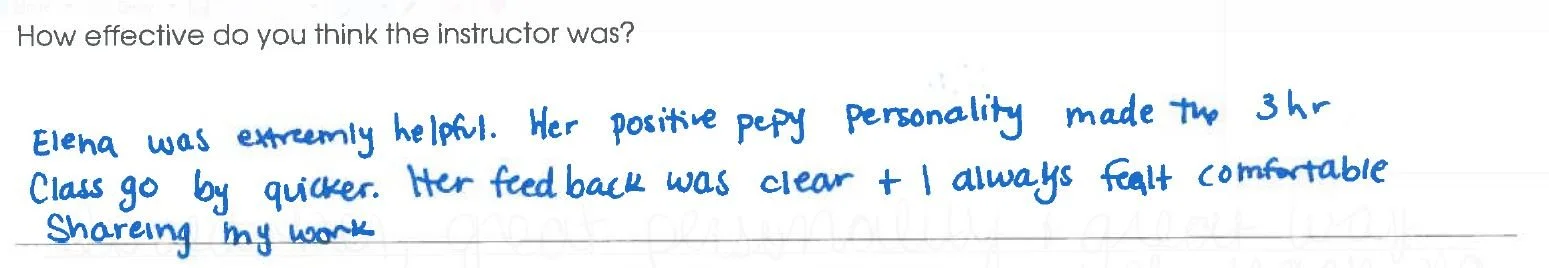 How effective do you think the instructor was?
Elena was extreemly helpful. Her positive pepy personality made the 3hr
Class go by quicker. Her feed back was clear + I always fealt comfortable
Shareing my work